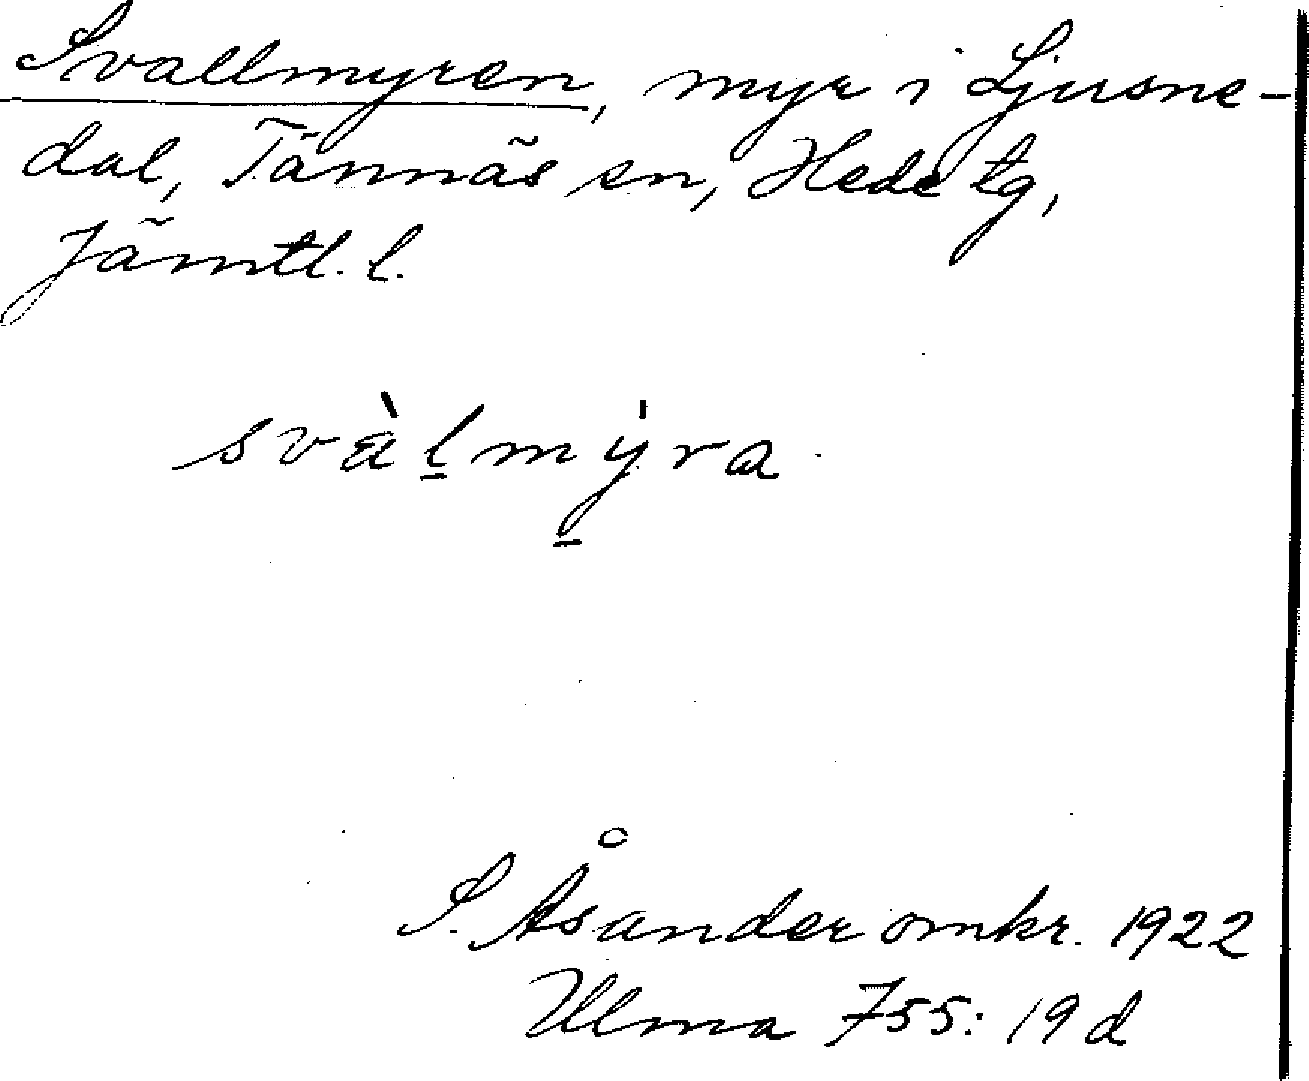 Svallmyren, myr i Ljusne-
dal, Tännäs sn, Hede tg,
Jämtl. l.
svàl̠mẏ̠ra
S. Åsander omkr. 1922
Ulma 755: 19 d